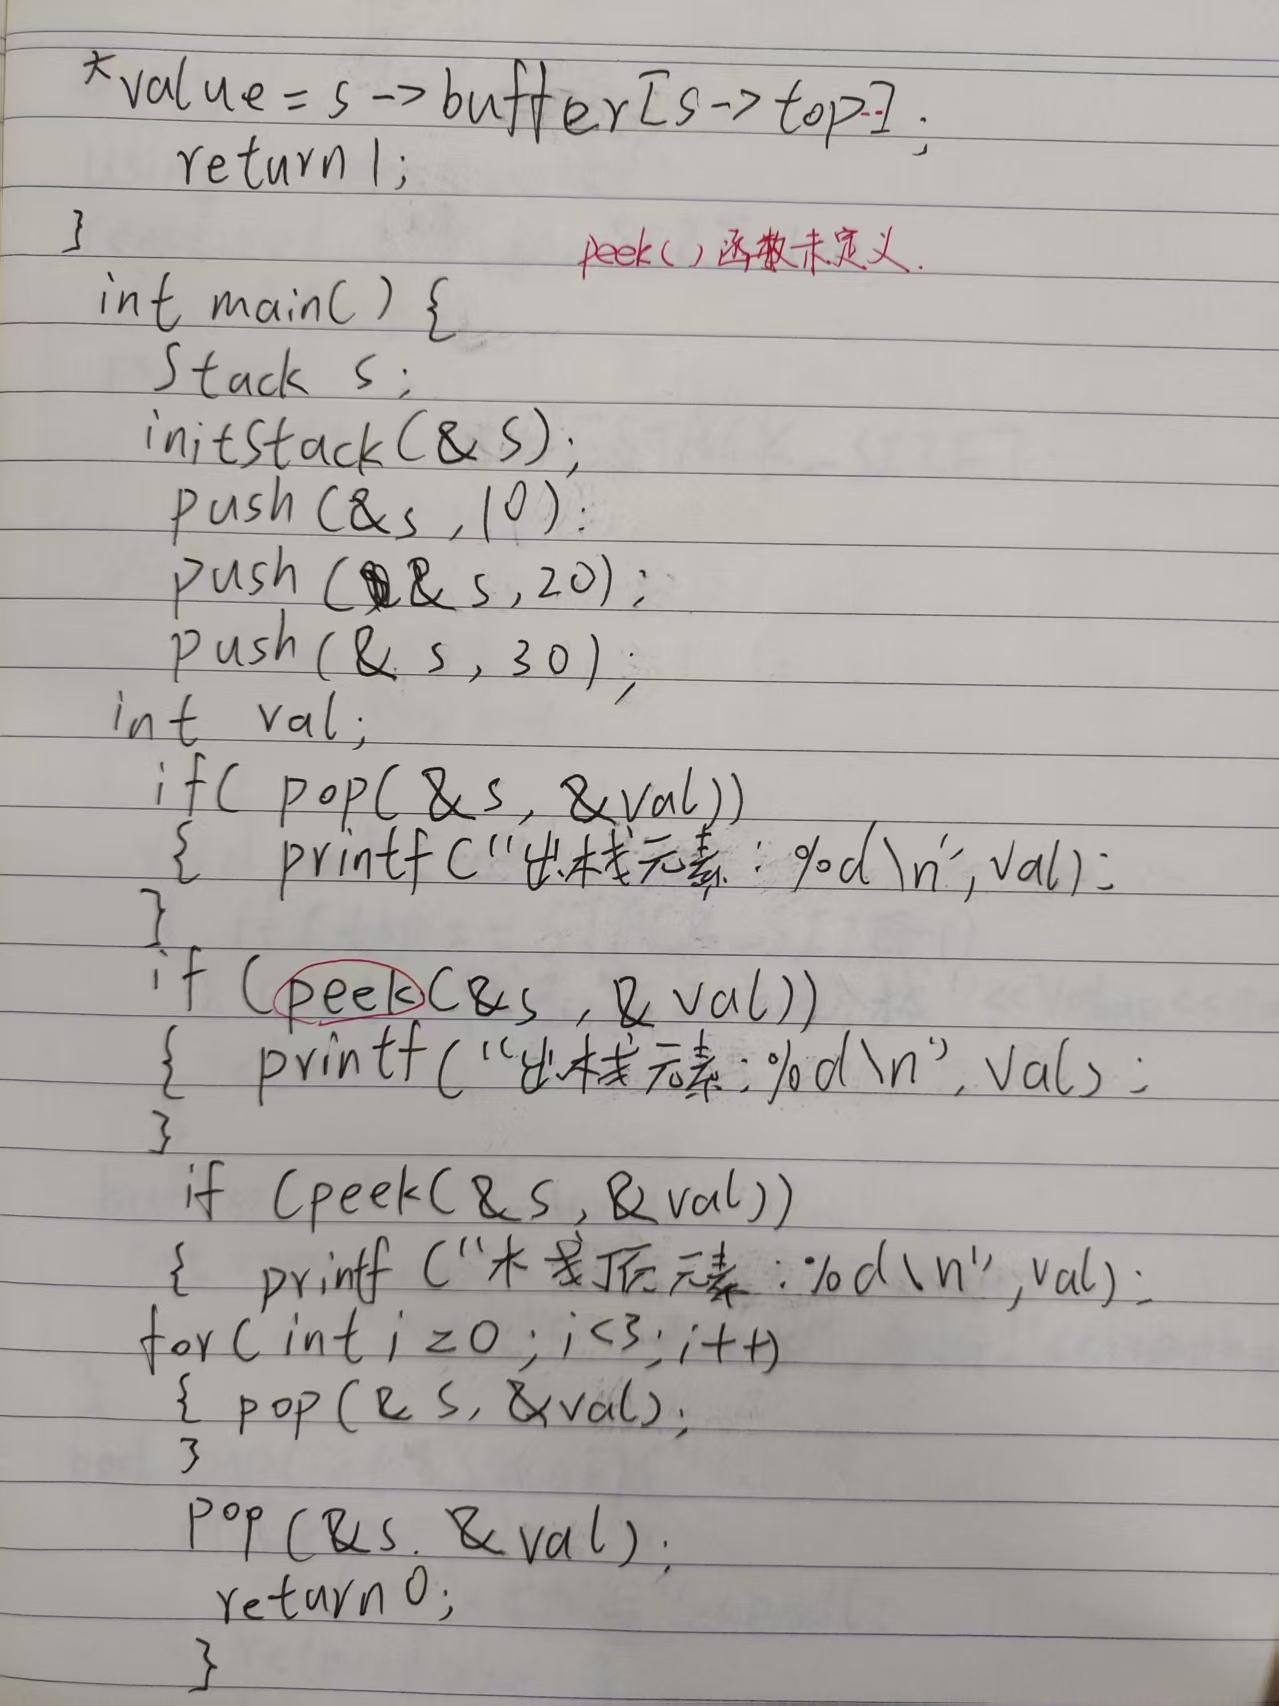 *value = s->buffer[s->top--];
return 1;
}
peek()函数未定义.
int main() {
Stack s;
initStack(&s);
push(&s,10);
push(&s,20);
push(&s,30);
int val;
if( pop(&s, &val))
{ printf("出栈元素:%d\n",val);
}
if (peek(&s, &val))
{ printf("出栈元素:%d\n", val);
}
if (peek(&s,&val))
{ printf("栈顶元素:%d\n",val);
for(int i=0;i<3;i++)
{ pop(&s,&val);
}
pop(&s,&val);
return 0;
}